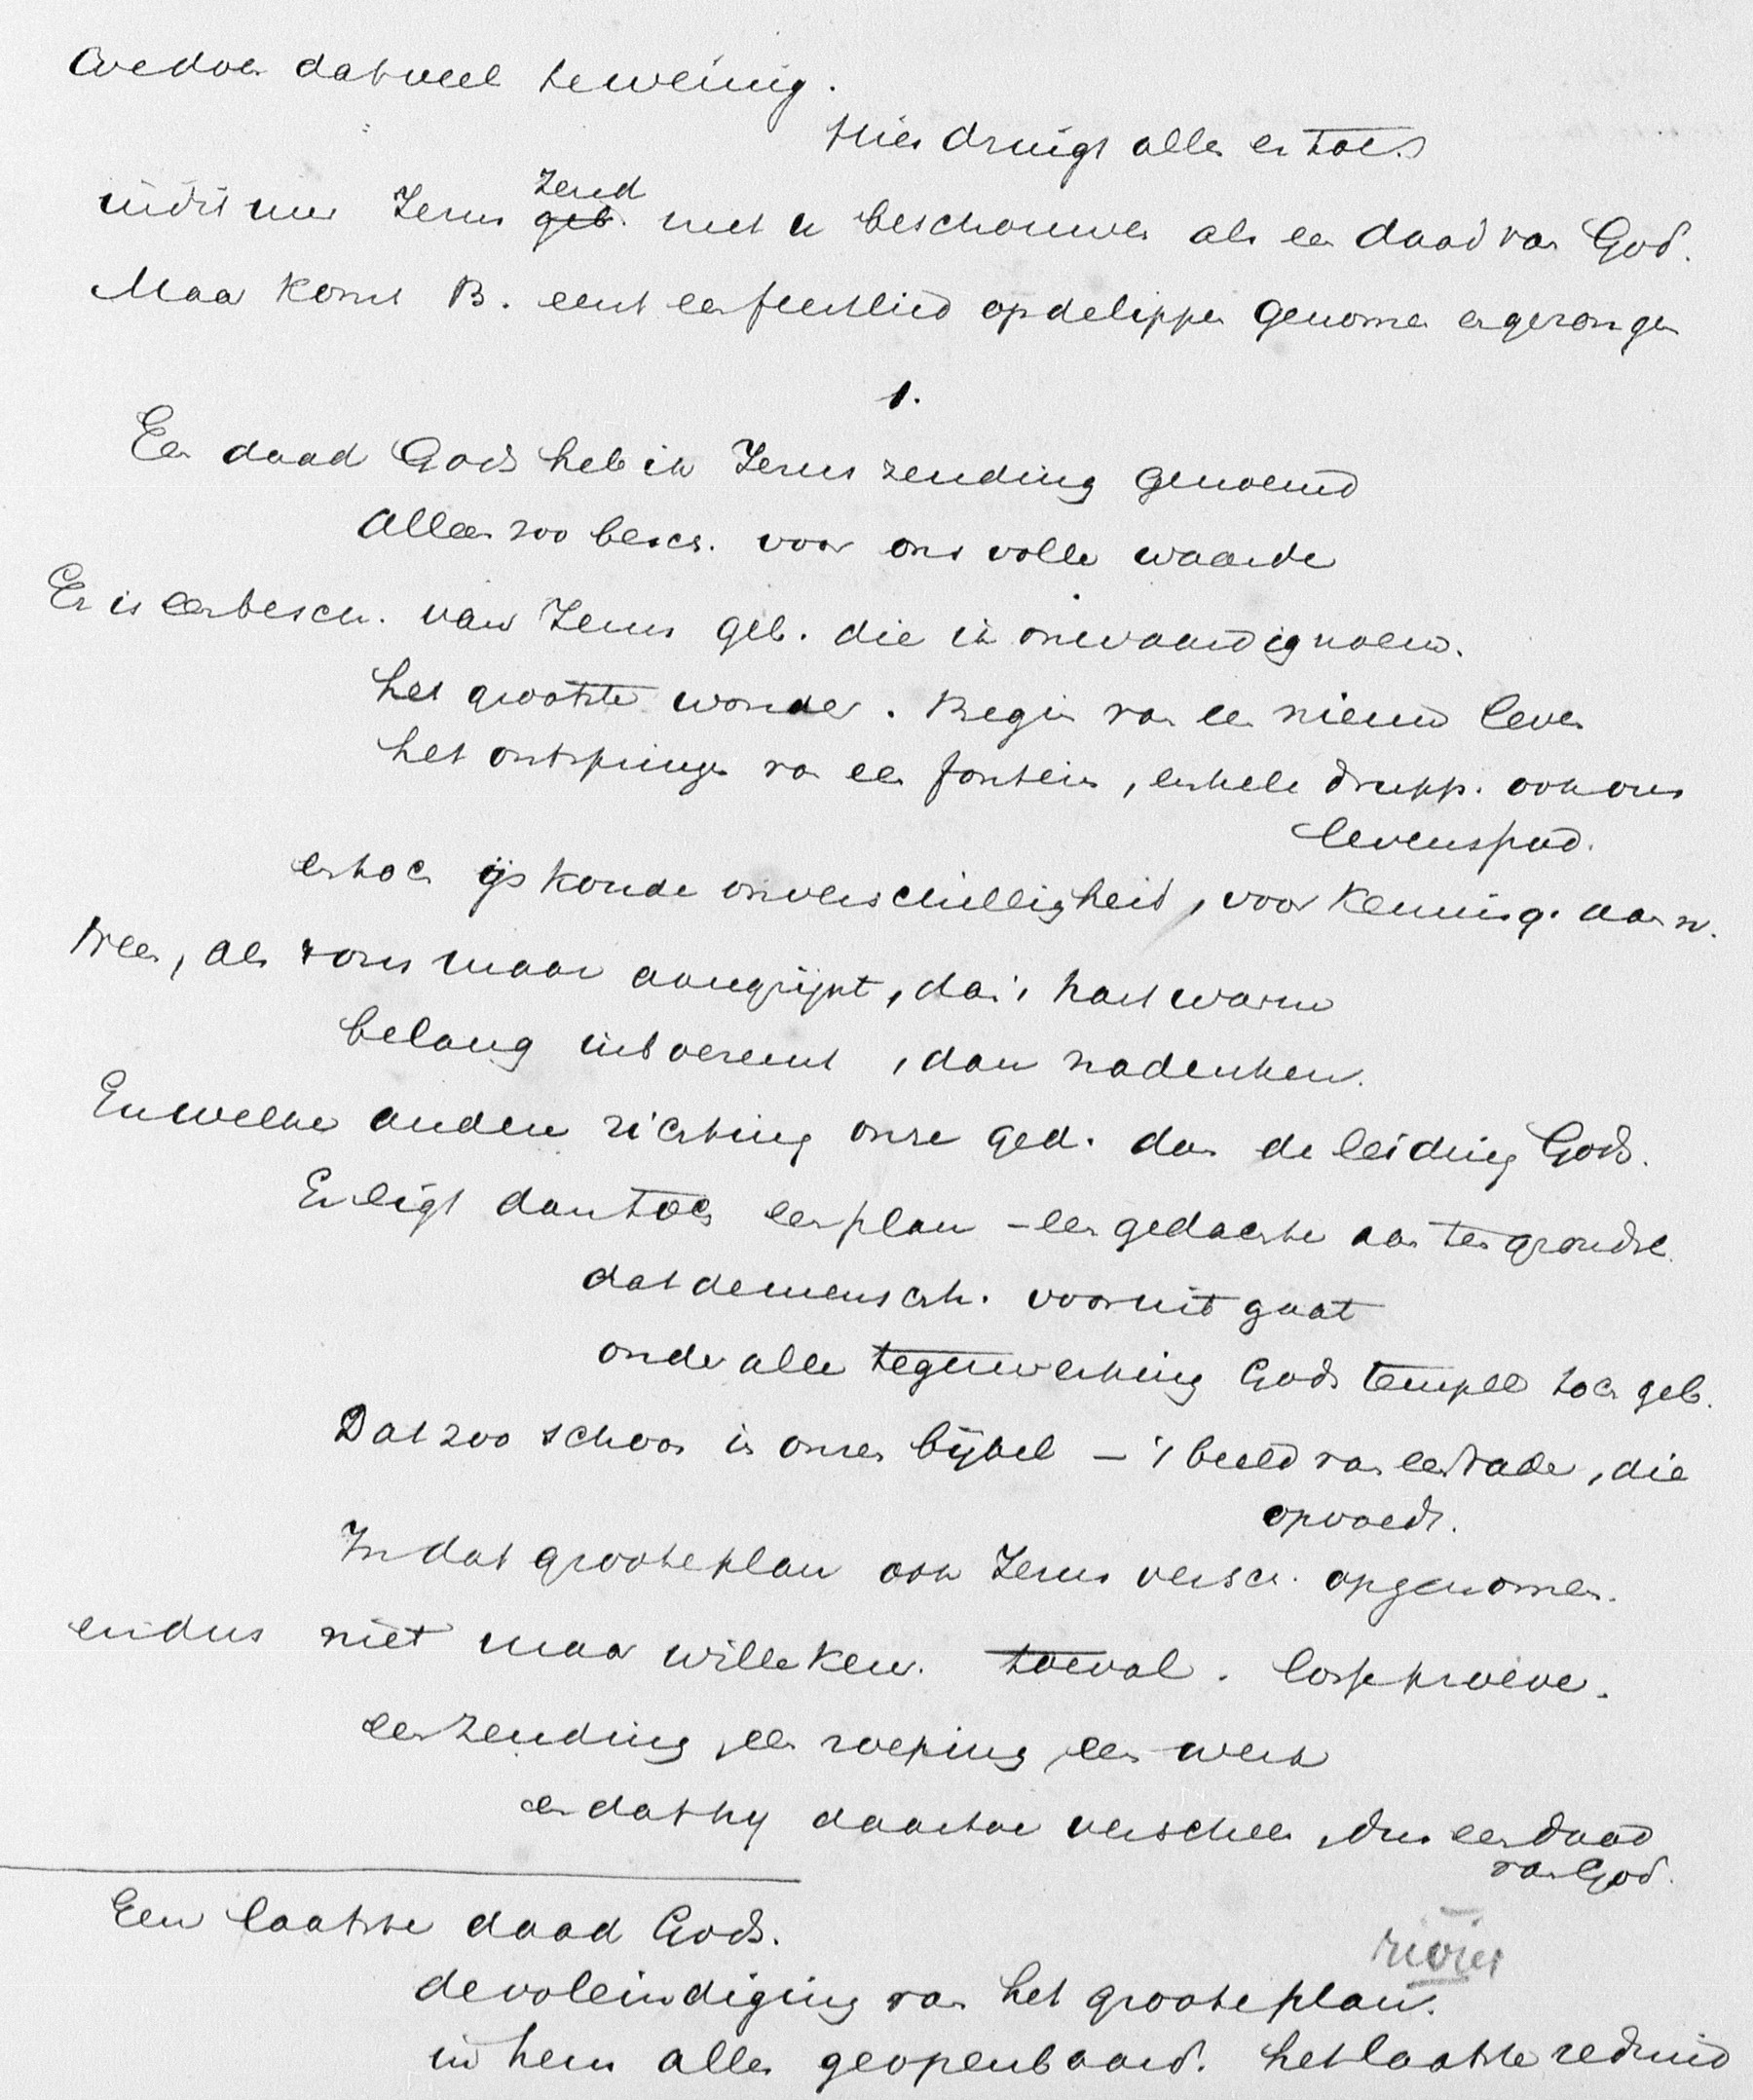 we doen dat veel te weinig.
Hier dringt alles er toe
indien men Jezus zend geb. niet te beschouwen als een daad van God.
Maar komt B. eerst een feestlied op de lippen genomen en gezongen
1.
Een daad Gods heb ik Jezus zending genoemd
Alleen zoo besch. voor ons volle waarde
Er is een besch. van Jezus geb. die ik onwaardig noem.
het grootste wonder. Begin van een nieuw leven
het ontspringen van een fontein, enkele drupp. ook ons
levenspad.
en toch ijskoude onverschilligheid, voor kenning. aan n.
Neen, als 't ons maar aangrijpt, da 't hart warm
belang inboezemt, dan nadenken.
En welke andere richting onze ged. dan de leiding Gods.
Er ligt dan toch een plan - een gedachte aan ten grondsl.
dat de mensch. vooruit gaat
onder alle tegenwerking Gods tempel toch geb.
Dat zoo schoon in onzen bijbel - 't beeld van een Vader, die
opvoedt.
In dat groote plan ook Jezus versch. opgenomen.
en dus niet maar willeken. toeval. losse proeve.
een zending, een roeping, een werk
en dat hij daartoe verscheen, dus een daad
van God.
Een laatste daad Gods.
rivier
de voleindiging van het groote plan.
in hem alles geopenbaard. het laatste